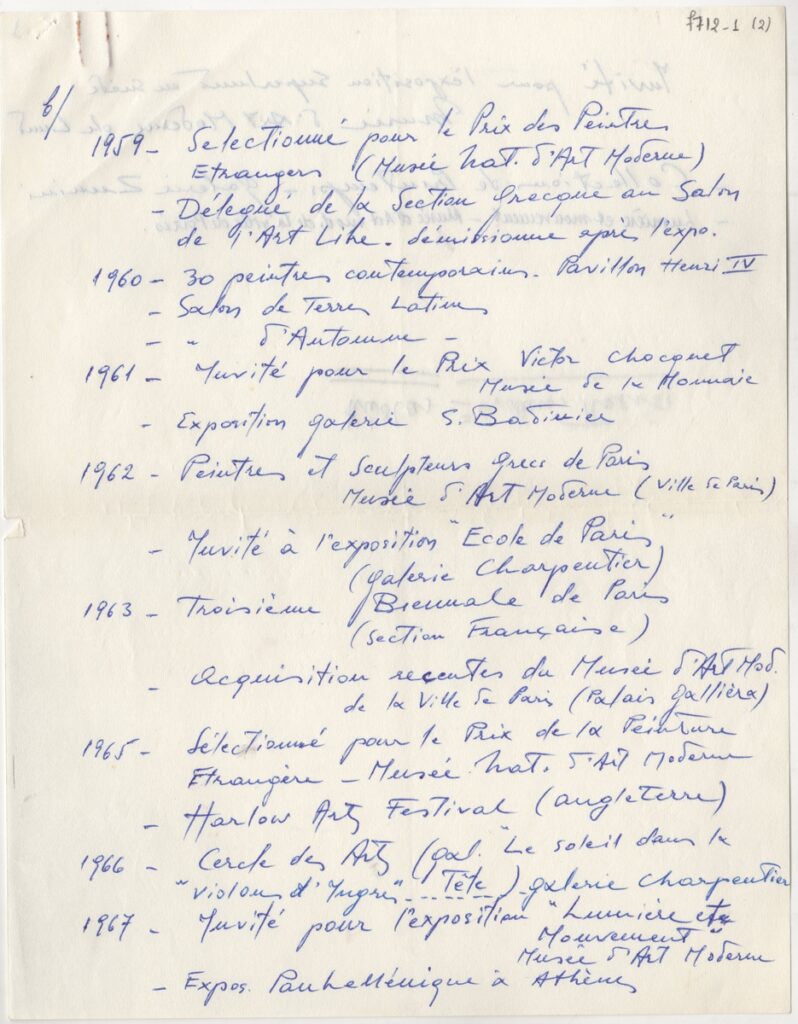 F712-1 (2)
b/
1959 - Selectionné pour le Prix des Peintres
Etrangers (Musée Nat. d'Art Moderne)
- Délegué de la Section Grecque au Salon
de l'Art Libre - démissionne apres l'expo.
1960 - 30 peintres contemporains. Pavillon Henri IV
- Salon de Terres Latines
- " d'Automne -
1961 - Invité pour le Prix Victor Chocquet
Musée de la Monnaie
- Exposition galerie S. Badinier
1962 - Peintres et Sculpteurs grecs de Paris
Musée d'Art Moderne (Ville de Paris)
- Invité à l'exposition "Ecole de Paris"
(galerie Charpentier)
1963 - Troisième Biennale de Paris
(Section Française)
- Acquisition recentes du Musée d'Art Mod.
de la Ville de Paris (Palais Galliéra)
1965 - Sélectionné pour le Prix de la Peinture
Etrangère - Musée Nat. d'Art Moderne
- Harlow Arts Festival (angleterre)
1966 - Cercle des Arts (gal. "Le soleil dans la
"Violons d'Ingres" Tête) galerie Charpentier
1967 - Invité pour l'exposition "Lumière et
Mouvement"
Musée d'Art Moderne
- Expos. Panhellénique à Athènes